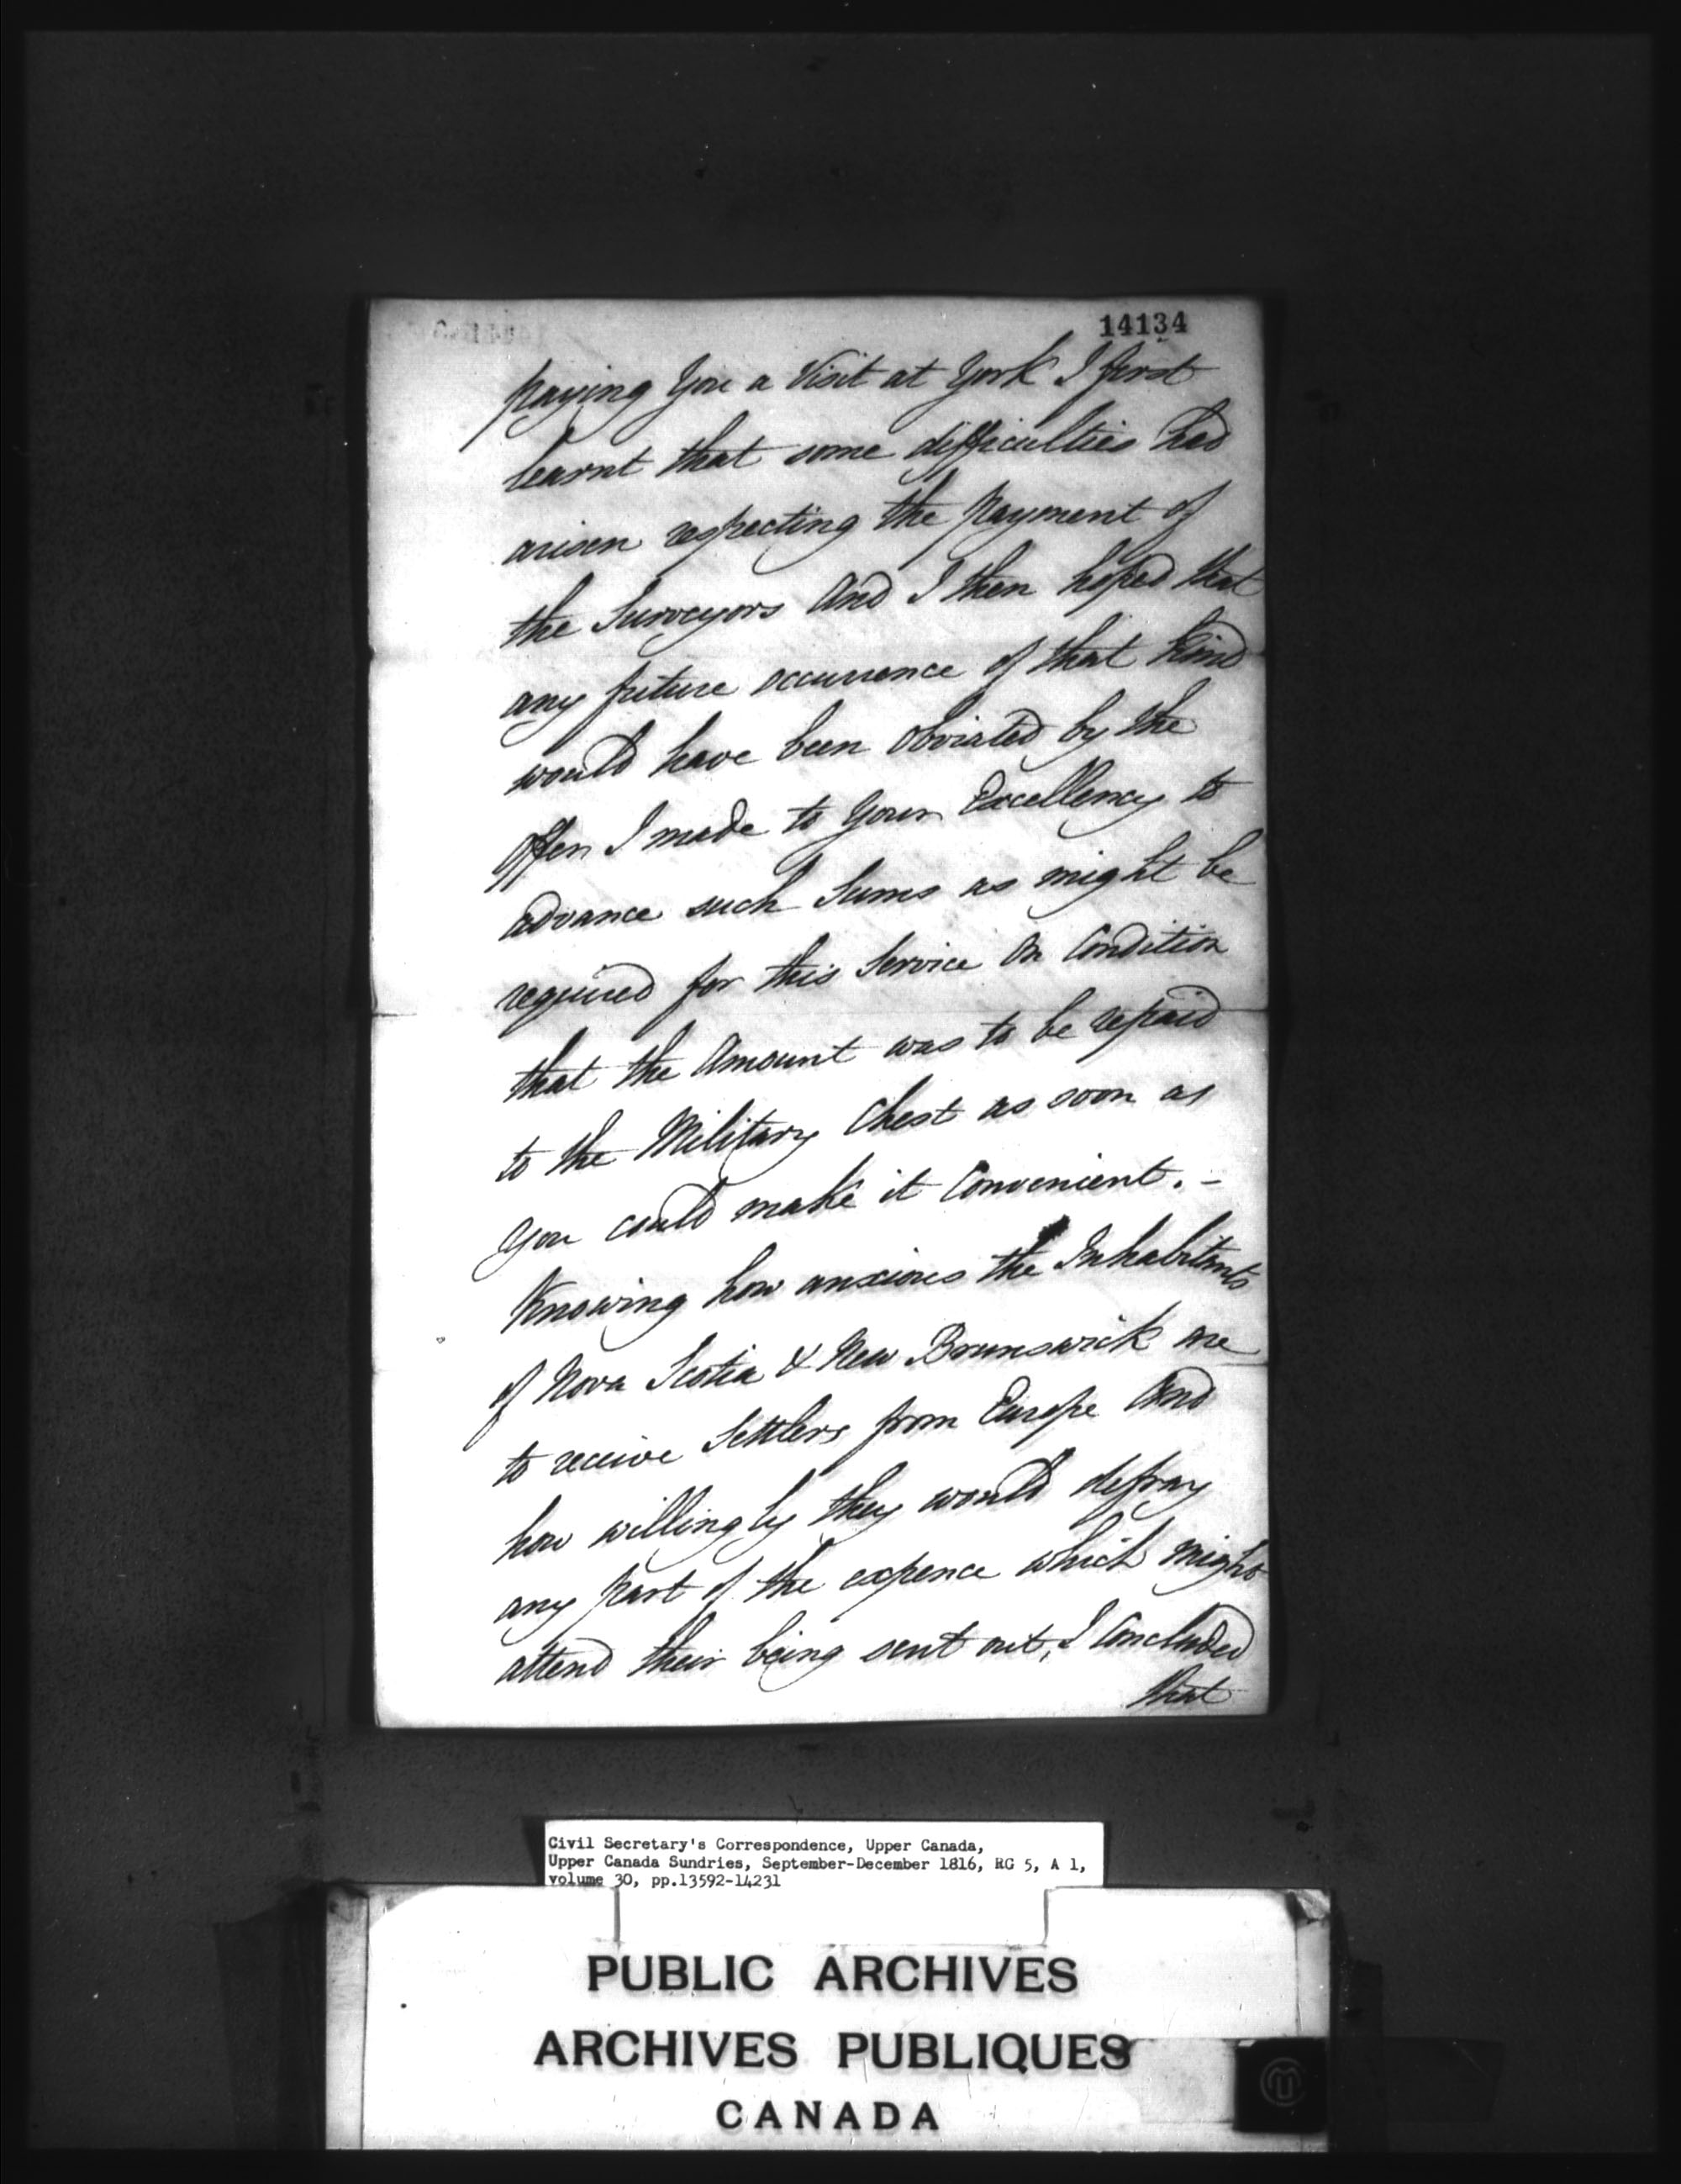 14134
paying You a Visit at York I first
learnt that some difficulties had
arisen respecting the payment of
the Surveyors And I then hoped that
any future occurrence of that kind
would have been obviated by the
offer I made to Your Excellency to
advance such Sums as might be
required for this Service On Condition
that the Amount was to be repaid
to the Military Chest as soon as
you could make it Convenient. -
Knowing how anxious the Inhabitants
of Nova Scotia & New Brunswick are
to receive Settlers from Europe And
how willingly they would defray
any part of the expence which might
attend their being sent out, I Concluded
that
Civil Secretary's Correspondence, Upper Canada,
Upper Canada Sundries, September-December 1816, RG 5, A 1,
volume 30, pp.13592-14231
PUBLIC ARCHIVES
ARCHIVES PUBLIQUES
CANADA